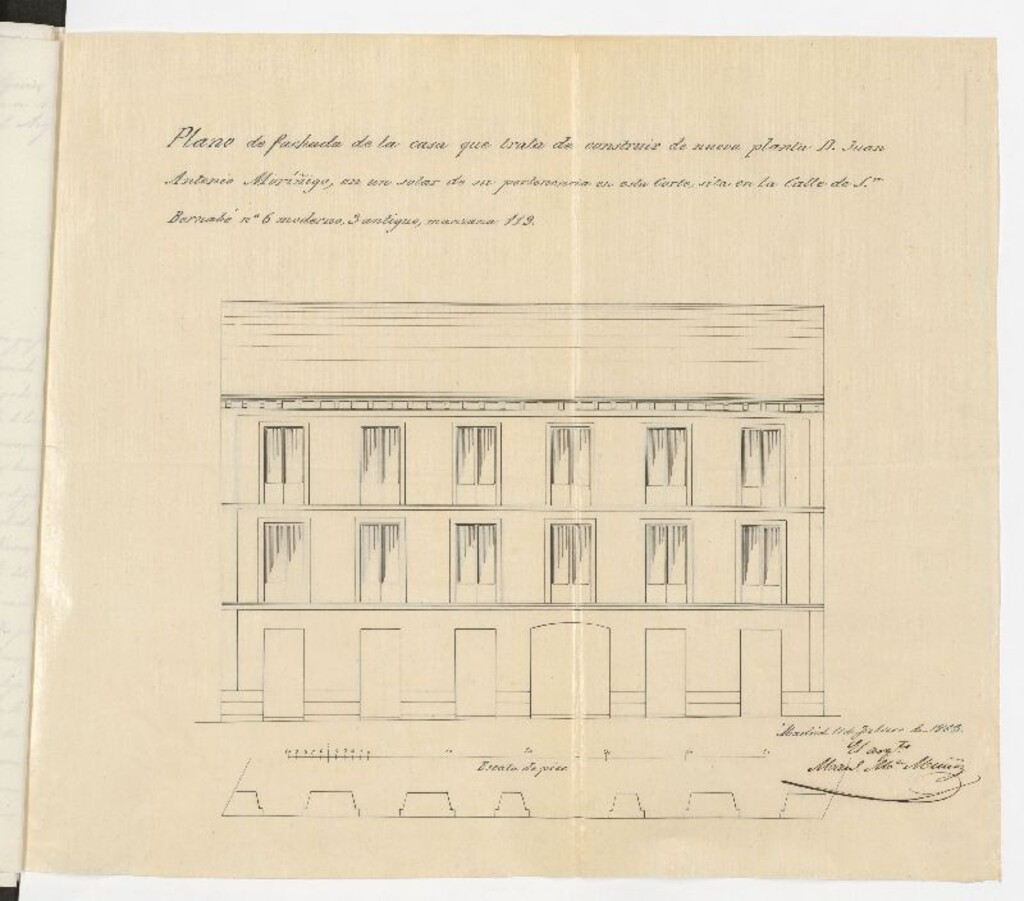 Plano de fachada de la casa que trata de construir de nueva planta D. Juan
Antonio Moríñigo, en un solar de su pertenencia en esta Corte, sita en la Calle de S.n
Bernabé nº 6 moderno, 3 antiguo, manzana 119.
Madrid 11 de Febrero de
El arq.to
Man.l M.a Muñoz
Escala de pies